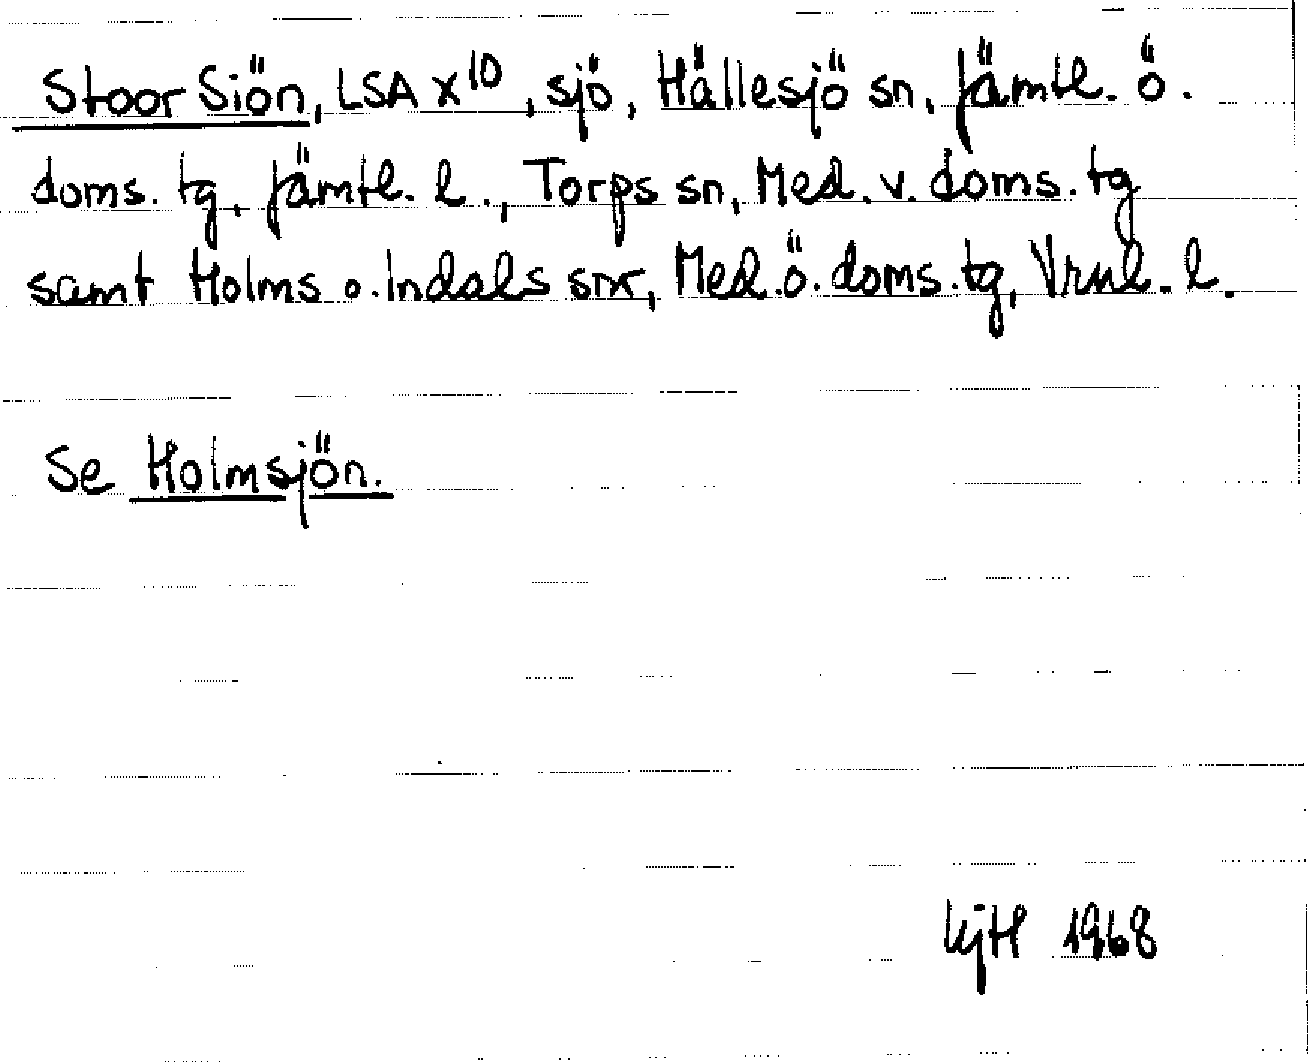 Stoor Siön, LSA X 10, sjö, Hällesjö sn, Jämtl. ö.
doms. tg, Jämtl. l., Torps sn, Med. v. doms. tg
samt Holms o. Indals snr, Med. ö. doms. tg, Vrnl. l.
Se Holmsjön.
KjH 1968